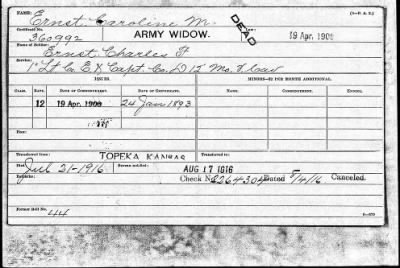 NAME: Ernst Caroline M.
Certificate No. 360992
ARMY WIDOW.
DEAD
19 Apr. 1908
Name of Soldier: Ernst Charles F.
1" Lt Co. E & Capt. Co. D 15 Mo. Cav
ISSUE.
MINORS—$2 PER MONTH ADDITIONAL.
CLASS. RATE. DATE OF COMMENCEMENT. DATE OF CERTIFICATE. NAME. COMMENCEMENT. ENDING.
12 19 Apr. 1908 24 Jan 1893
Transferred from: TOPEKA KANSAS Transferred to:
Died Jul 21-1916. Bureau notified: AUG 17 1916
Remarks: Check No. 2264304 Dated 8/4/16 Canceled.
Former Roll No. 44